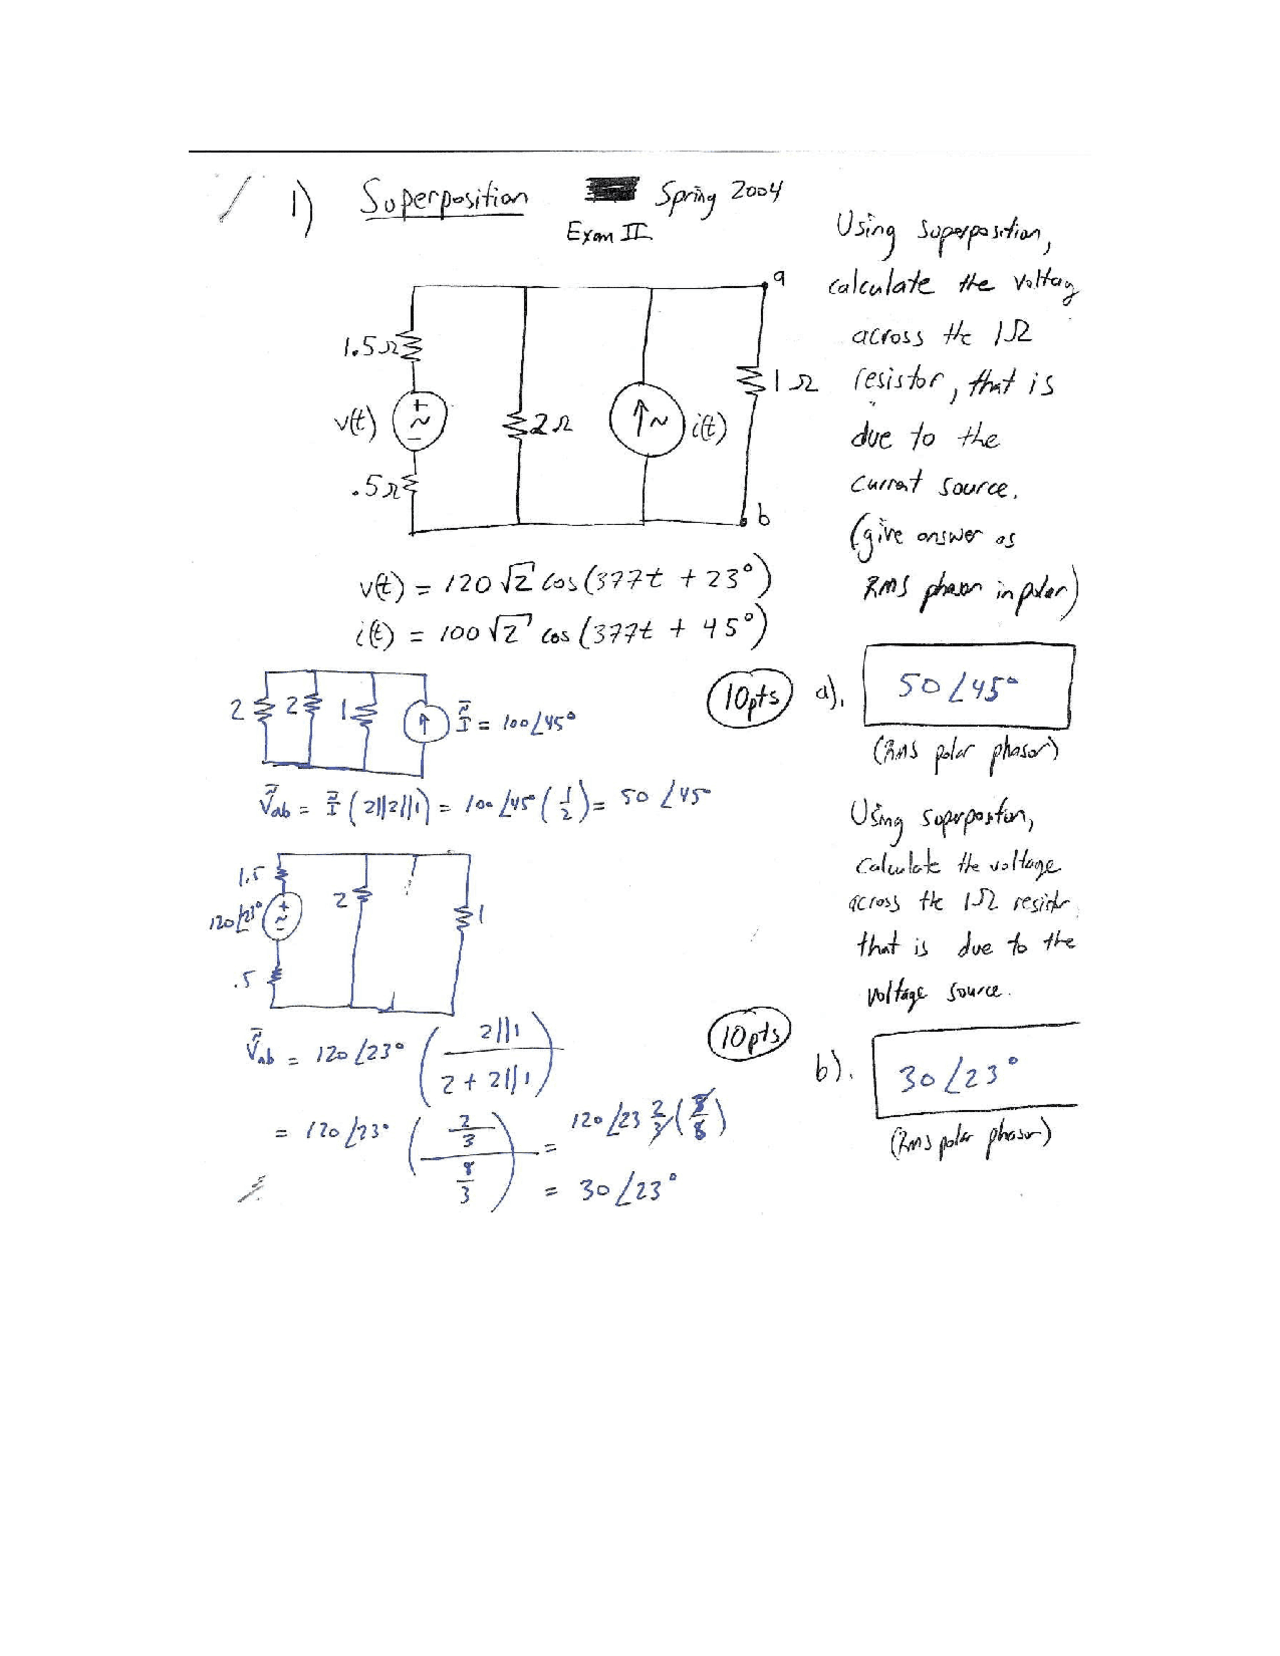 1) Superposition Spring 2004
Exam II
Using superposition,
calculate the voltag
across the 1Ω
resistor, that is
due to the
current source.
(give answer as
RMS phasor in polar)
a
1.5Ω
v(t)
+
~
-
.5Ω
2Ω
↑~
i(t)
1Ω
b
v(t) = 120√2 cos(377t + 23°)
i(t) = 100√2 cos(377t + 45°)
10pts
a).
50∠45°
(RMS polar phasor)
2
2
1
↑
Ĩ = 100∠45°
Ṽab = Ĩ(2||2||1) = 100∠45°(1/2) = 50∠45°
Using superposition,
calculate the voltage
across the 1Ω resistor
that is due to the
voltage source.
1.5
120∠23°
+
~
-
.5
2
1
10pts
b).
30∠23°
(RMS polar phasor)
Ṽab = 120∠23° (2||1 / 2 + 2||1)
= 120∠23° (2/3 / 8/3) = 120∠23 2/3 (3/8)
= 30∠23°